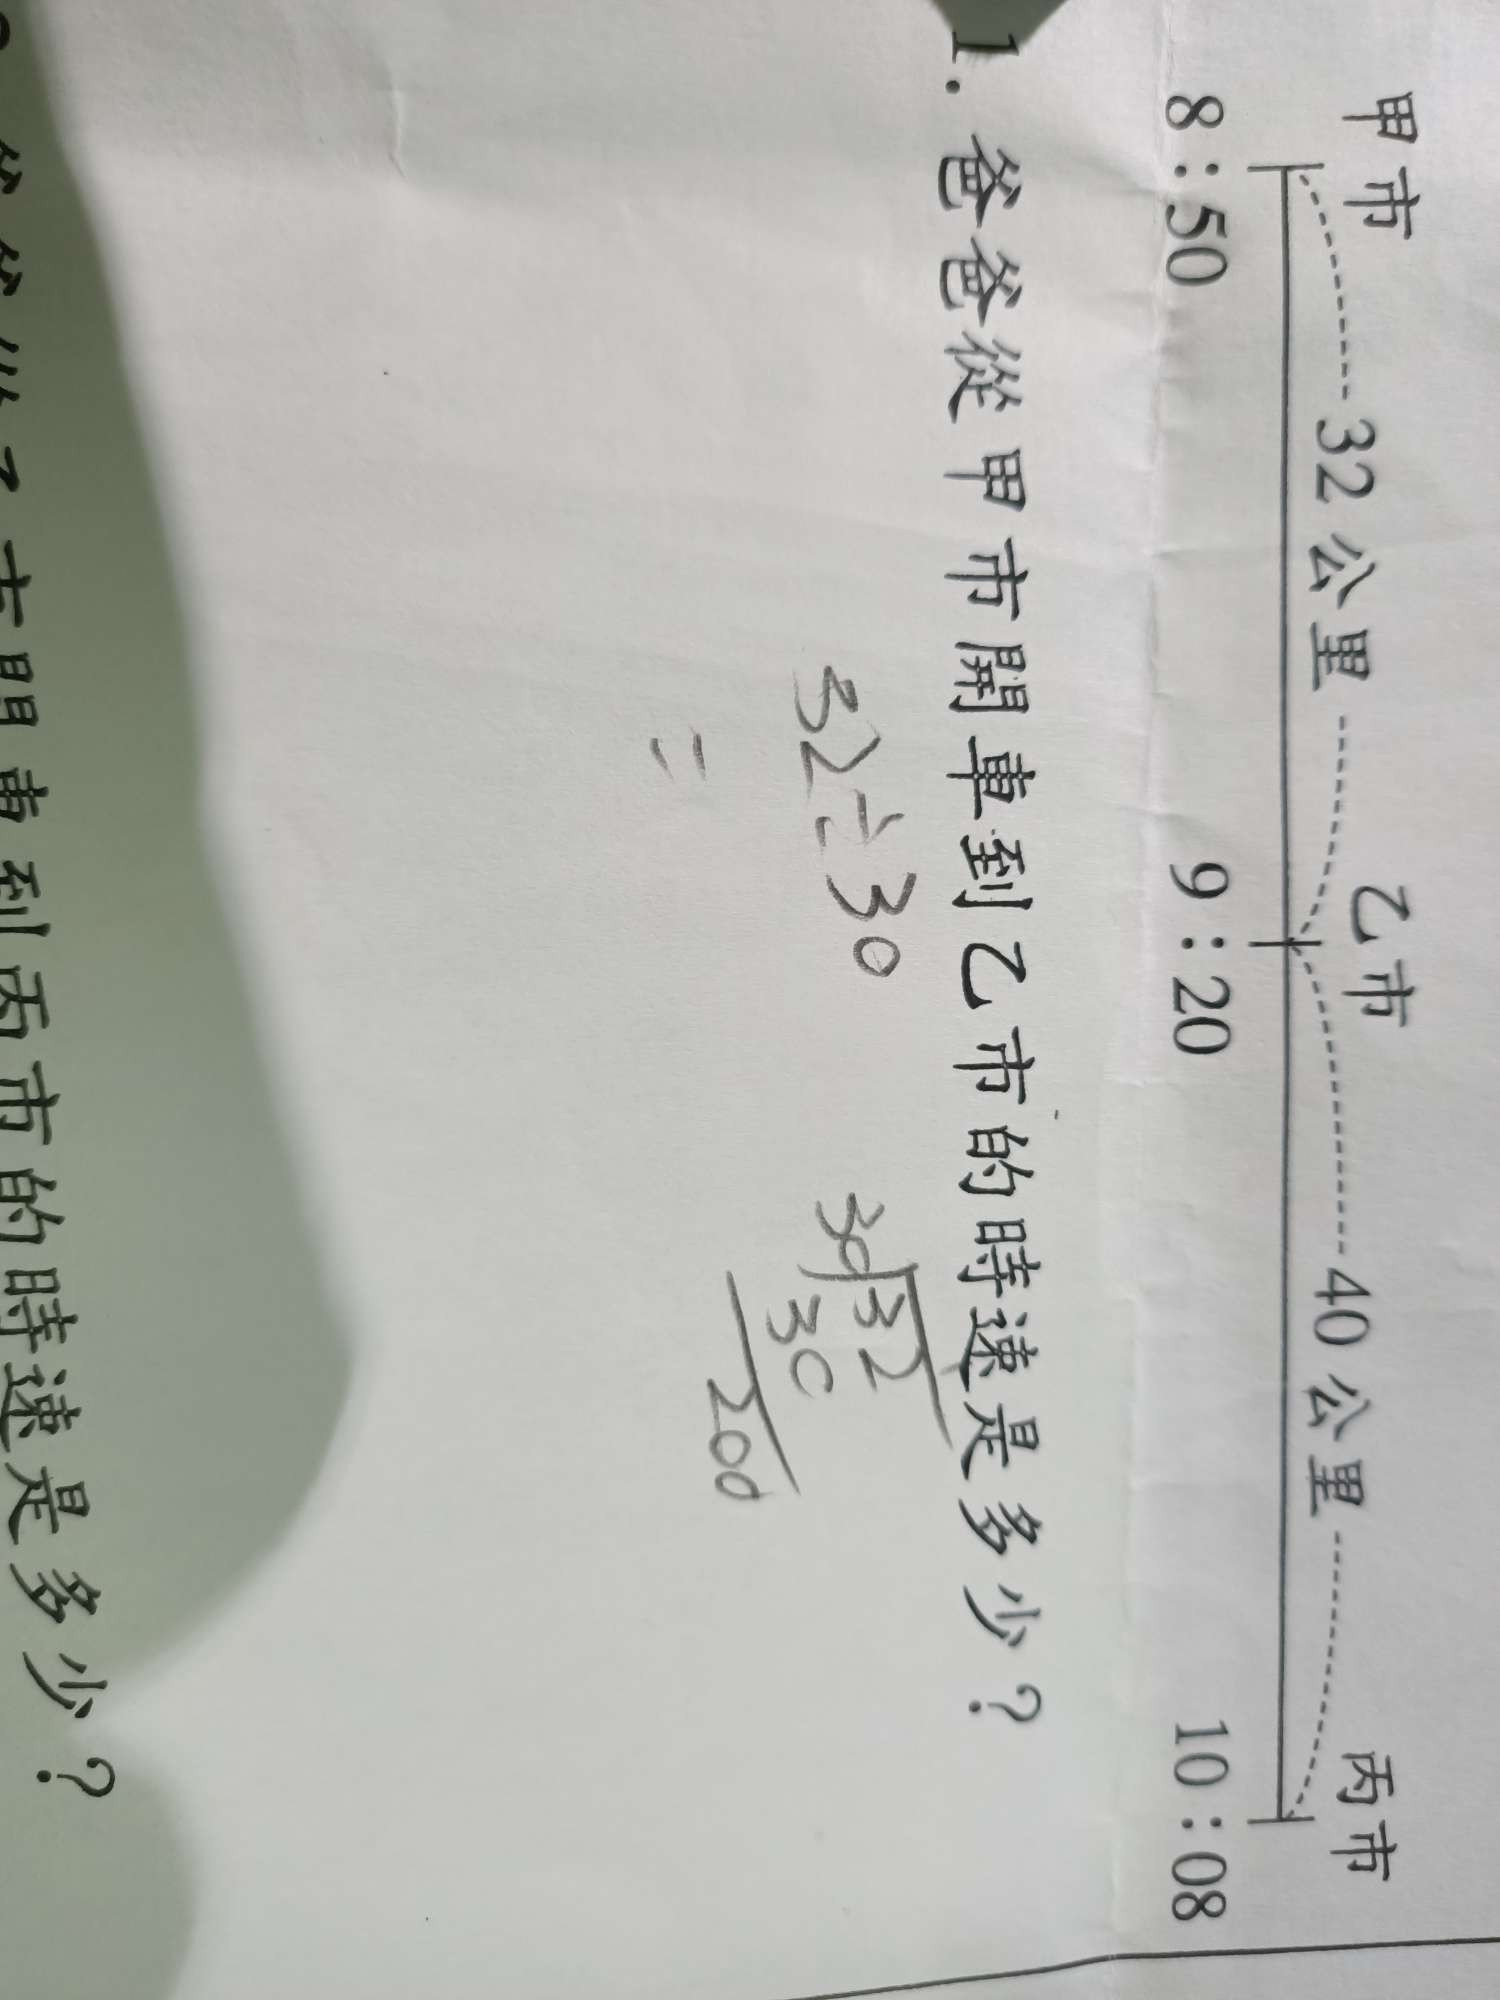 甲市 乙市 丙市
32公里 40公里
8:50 9:20 10:08
1. 爸爸從甲市開車到乙市的時速是多少?
32÷30
=
30 32
30
200
爸爸從乙市開車到丙市的時速是多少?